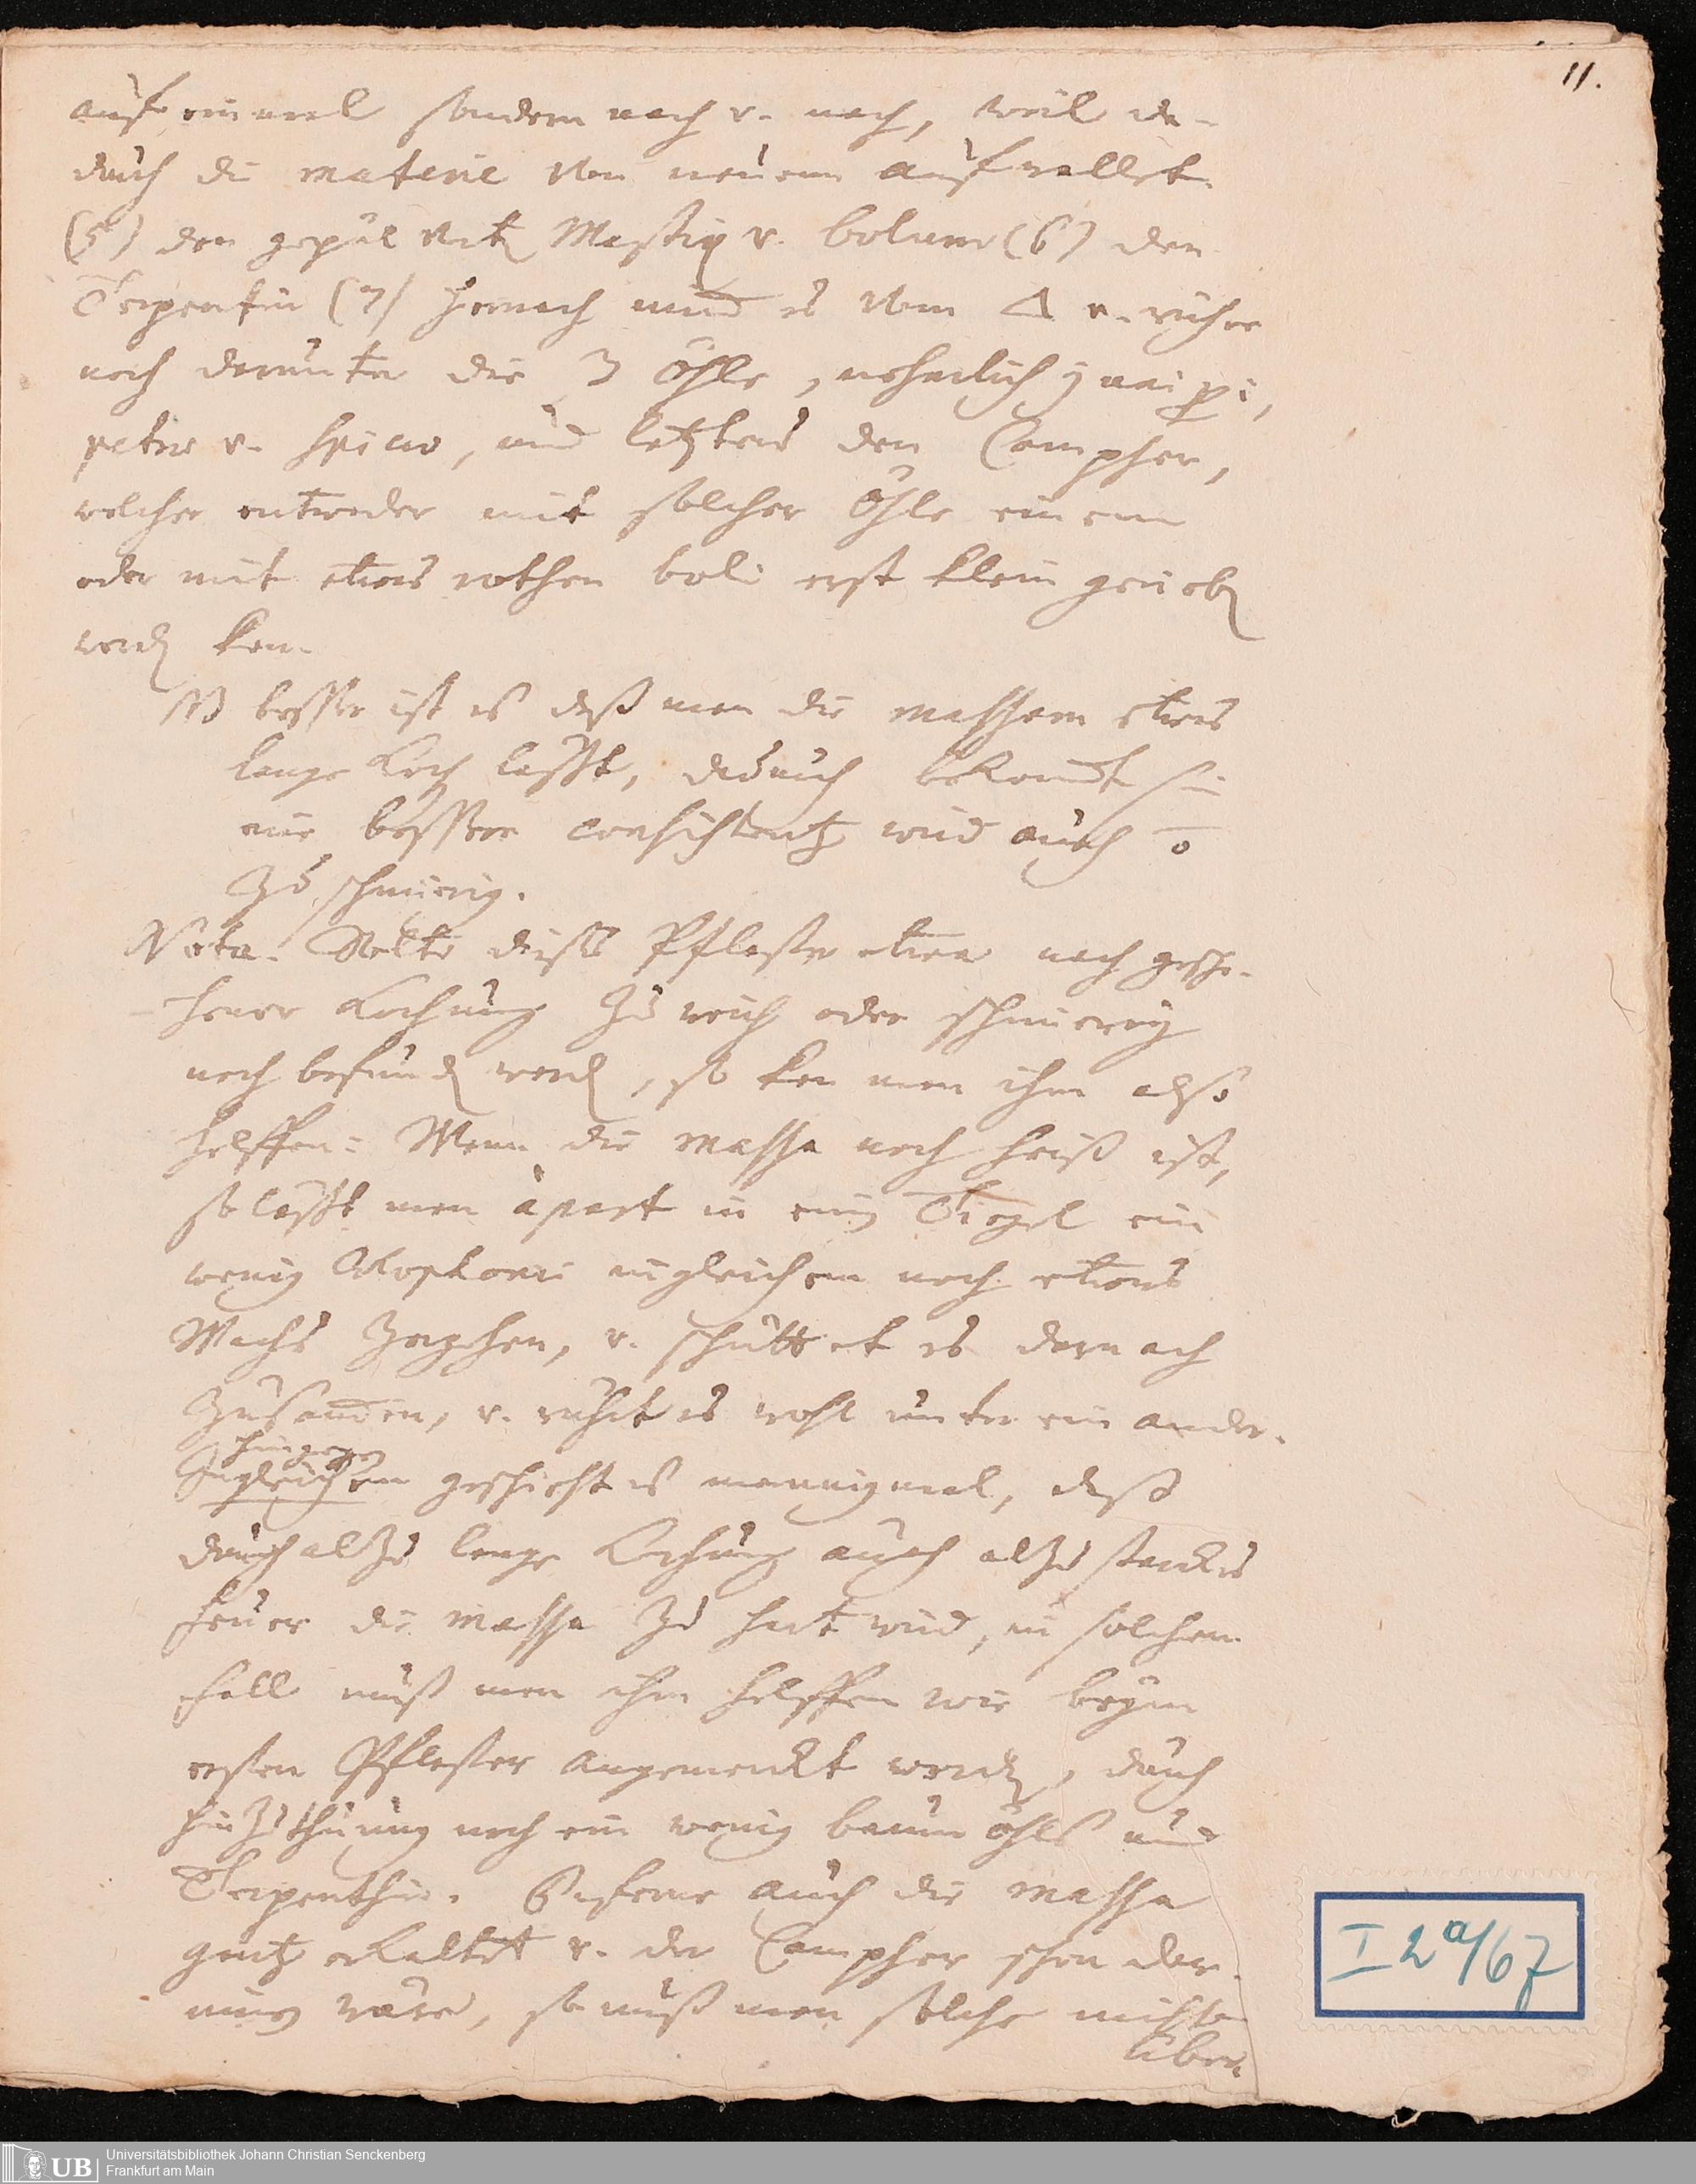 11.
auf einmal sondern nach v. nach, weil da-
durch die materie von neuem aufwallet.
(5) den gepül Mastix v. bolum (6) den
Terpentin (7) hernach nimd es vom △ v. rühre
noch darunter die 3 Öhle, nehmlich juniperi,
petrae v. spicae, und letztens den Campher,
welcher entweder mit solcher Öhle einem
oder mit etwas rothen boli erst klein gerieben
werden kan.
NB besser ist es daß man die massam etwas
lange Koch lasst, dadurch bekomt sie
eine bessere consistentz wird auch
zu schmierig.
Nota. Solte dieses Pflaster etwa nach gesche-
hener Kochung zu weich oder schmierig
noch befunden werden, so kan man ihm also
helffen: Wenn die massa noch heiß ist,
so lasst man àpart in einem Tiegel ein
wenig Colophonii ingleichem noch etwas
Wachs zergehen, v. schüttet es darnach
zusammen, v. rühret es wohl unter einander.
hingegen
Ingleichem geschieht es mannigmal, daß
durch alzu lange Kochung auch alzu starckes
feuer die massa zu hart wird, in solchem
fall muß man ihm helffen wie beym
ersten Pflaster angemerckt worden, durch
hinzuthuung noch ein wenig baum öhls und
Terpenthin. Gesetzt auch die massa
gantz erkaltet v. der Campher schon dar-
innen wäre, so muß man solche
über.
I 2a/67
UB
Universitätsbibliothek Johann Christian Senckenberg
Frankfurt am Main